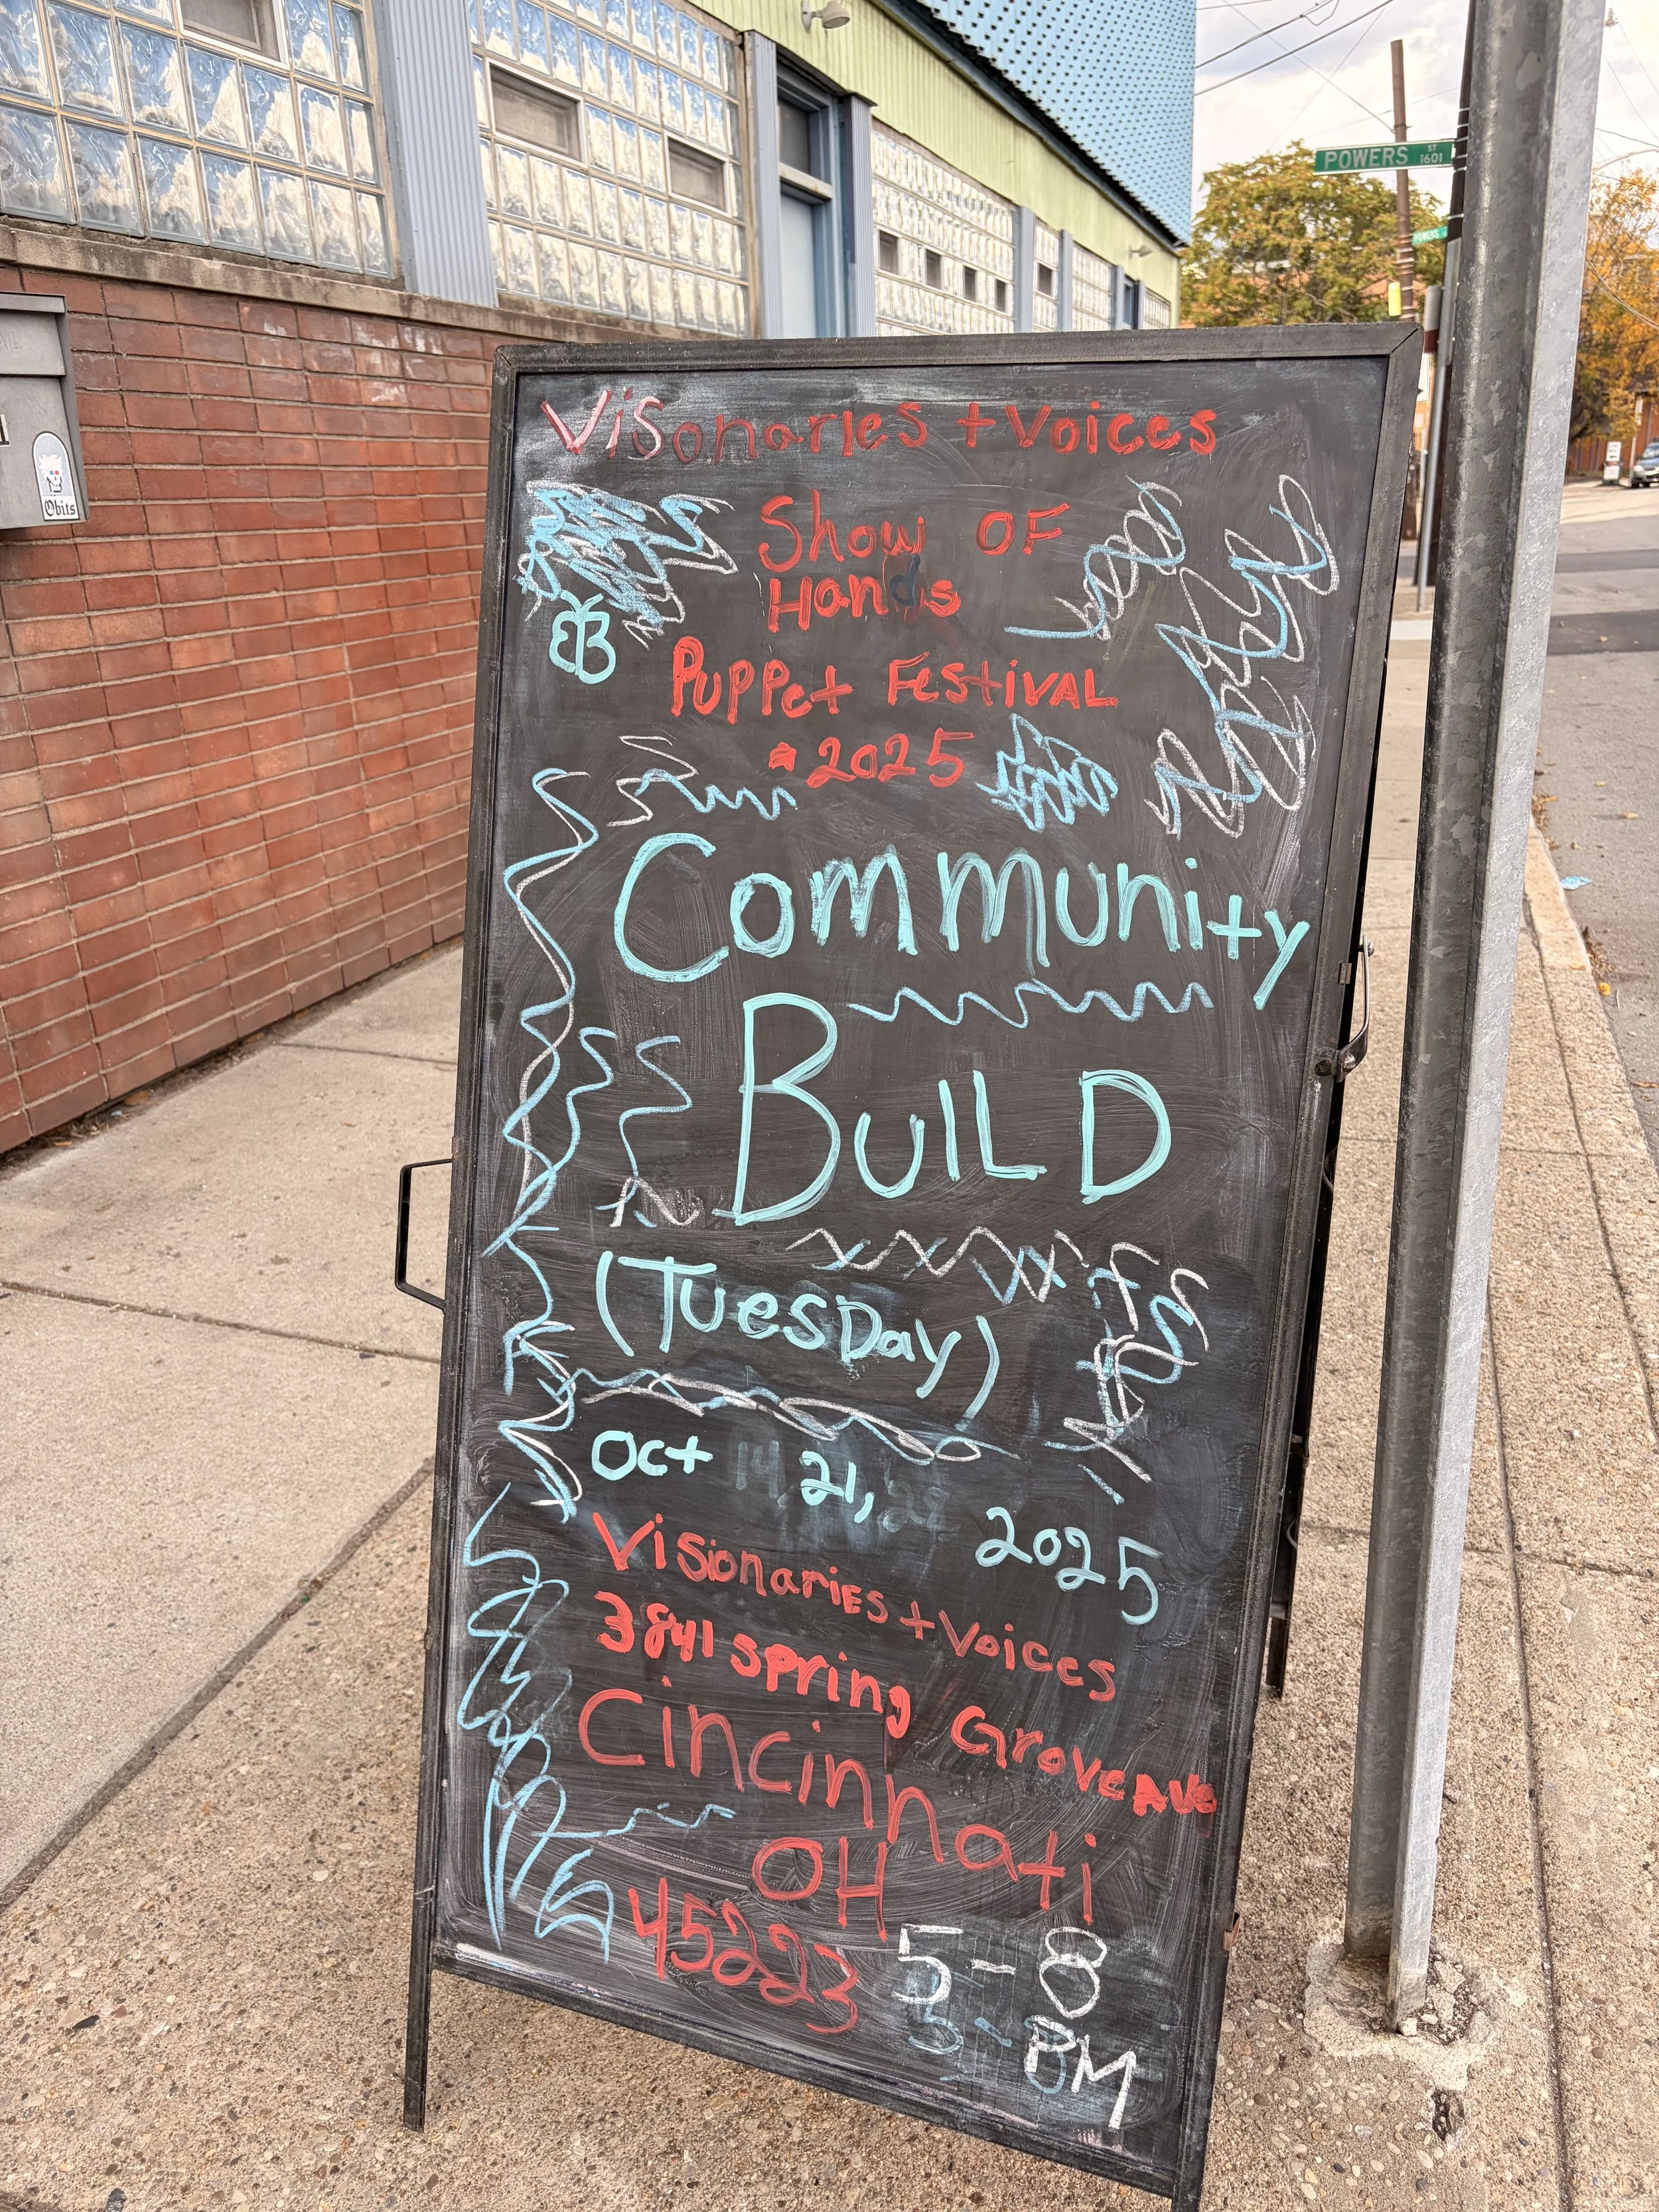 POWERS ST 1601
POWERS
Obits
Visonaries + Voices
Show OF
Hands
Puppet Festival
2025
Community
Build
(Tuesday)
Oct 14, 21, 28 2025
Visionaries + Voices
3841 spring Grove Ave
Cincinnati
OH
45223
5-8
PM